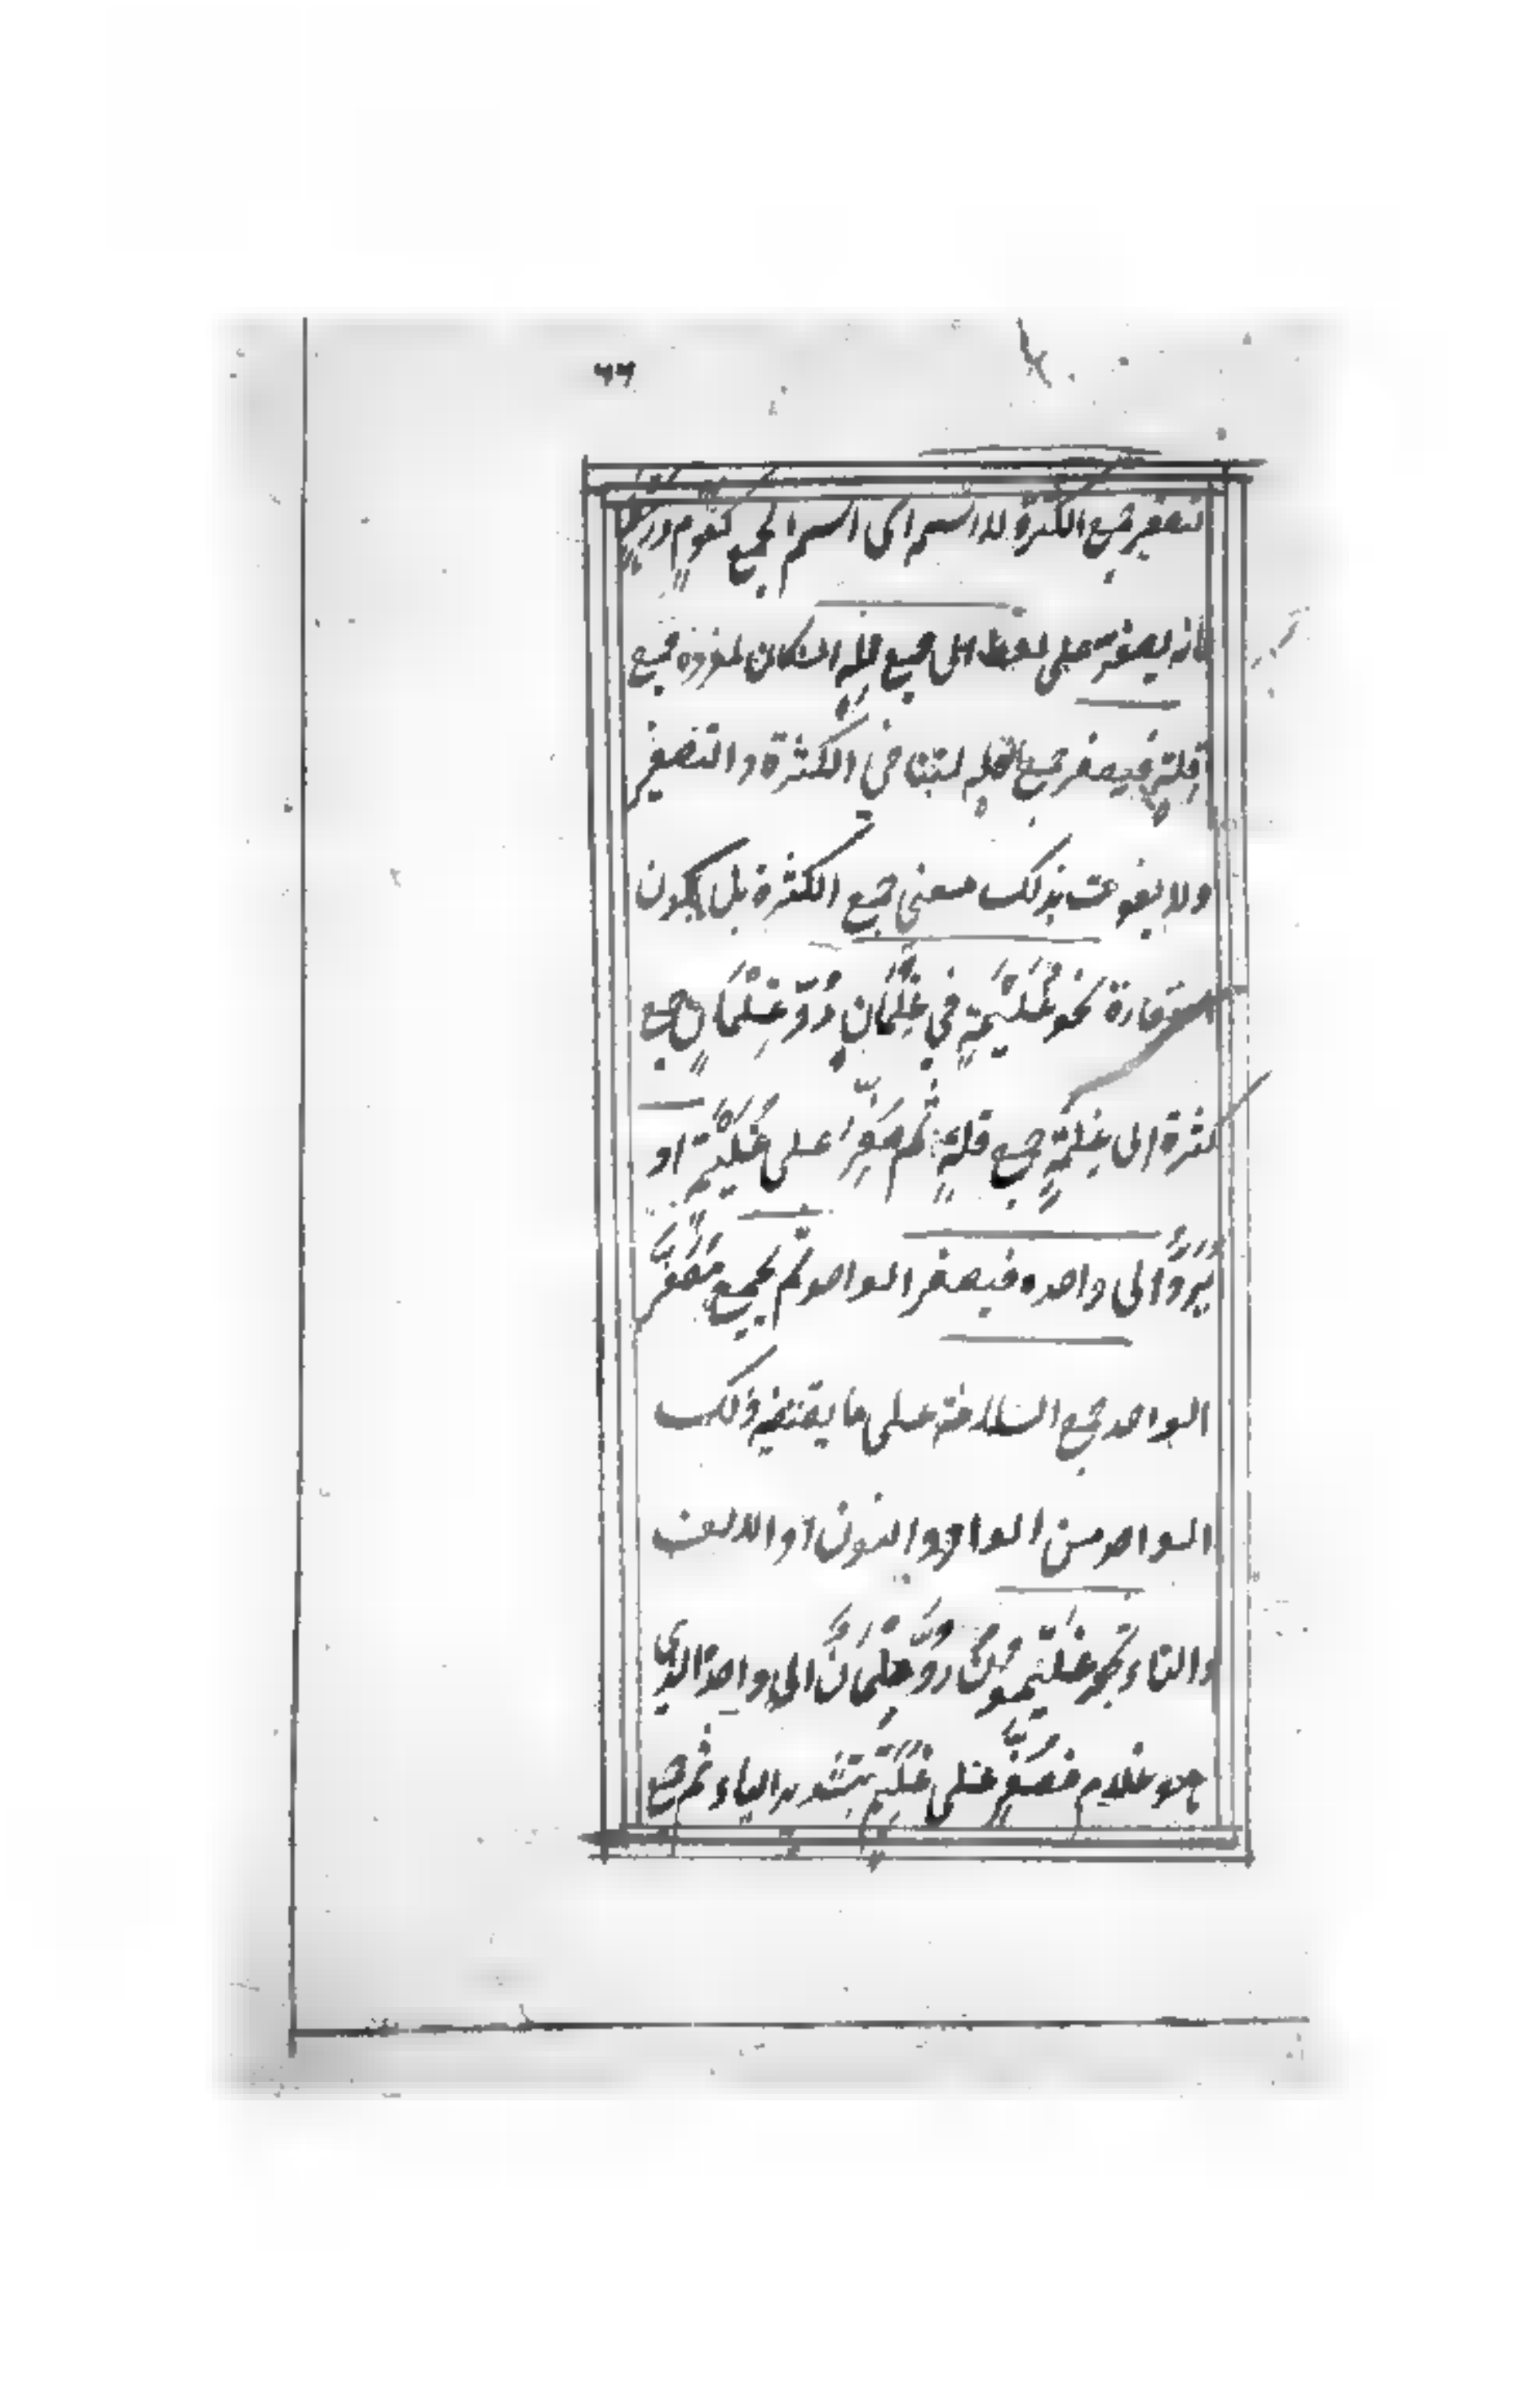 ٦٦
تصغير جمع الكثرة لا اسم اى اسم الجمع كقوم
فانه يصغر على لفظه الى جمع قلة ان كان لمفرده جمع
قلة فيصغر جمع القلة لتنافى الكثرة والتصغير
ولا يفوت بذلك معنى جمع الكثرة بل يكون
نحو غُلَيْمَةٍ في غِلْمَانٍ رُدَّ غِلْمَانٍ جمع
كثرة الى غِلْمَةٍ جمع قلةٍ ثم صُغِّرَ على غُلَيْمَةٍ او
الى واحده فيصغر الواحد ثم يجمع مصغر
الواحد جمع السلامة على ما يقتضيه ذلك
الواحد من الواو والنون او الالف
والتاء نحو غُلَيِّمُونَ رُدَّ غِلْمَانَ الى واحده الذي
هو غلام فصُغِّرَ على غُلَيِّم بتشديد الياء ثم جمع